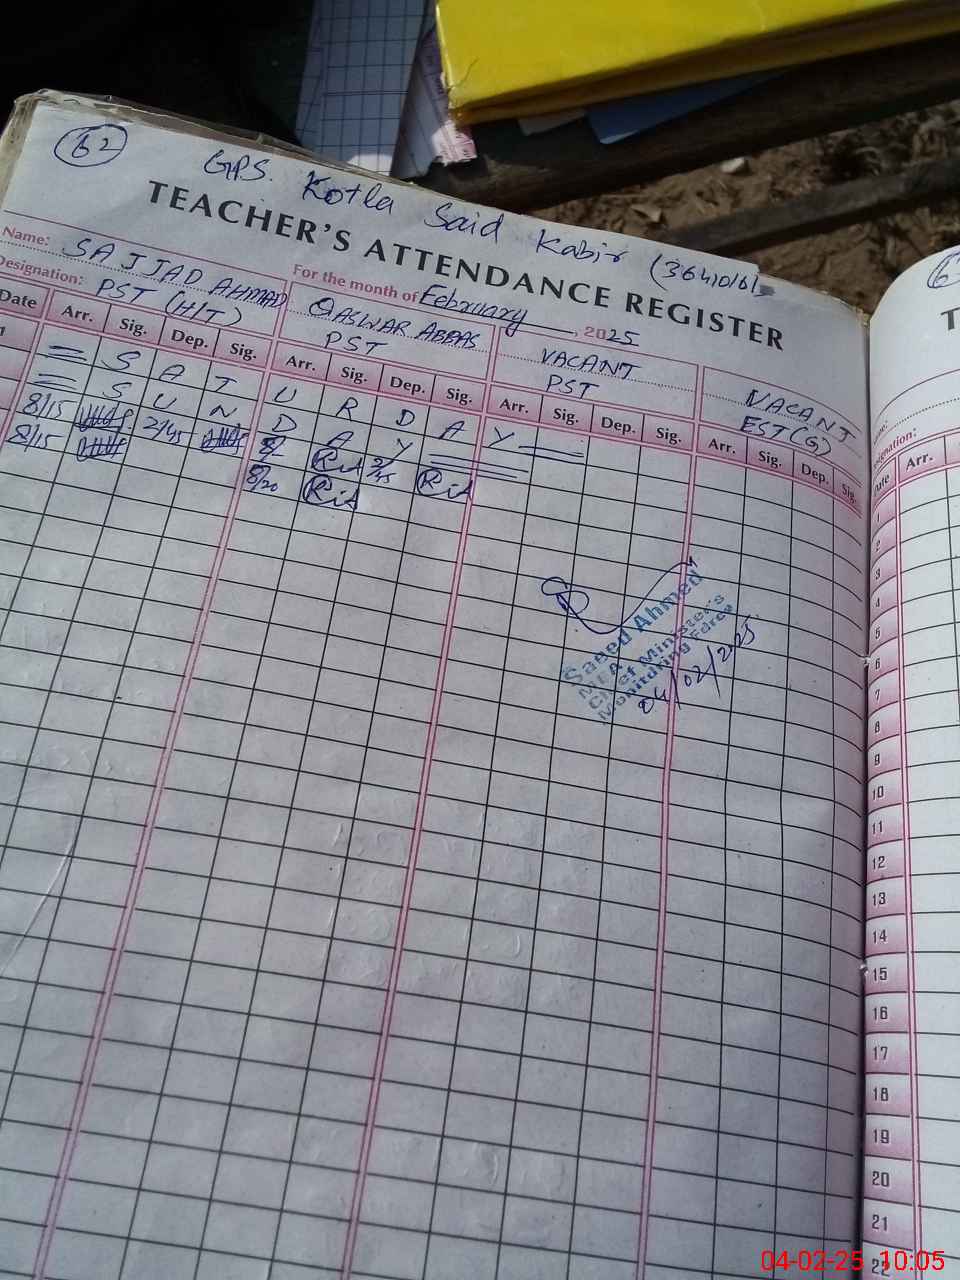 62
GPS. Kotla Said Kabir (36410161)
TEACHER'S ATTENDANCE REGISTER
Name: SAJJAD AHMAD
For the month of February, 2025
Designation: PST (H/T)
QASWAR ABBAS
PST
VACANT
PST
VACANT
EST (G)
Date Arr. Sig. Dep. Sig. Arr. Sig. Dep. Sig. Arr. Sig. Dep. Sig. Arr. Sig. Dep. Sig.
1 S A T U R D A Y
S U N D A Y
8/15 2/45 8/ 2/45
8/15 8/20
Saeed Ahmed
MEA
Chief Minister's
Monitoring Force
04/02/2025
63
T
Designation:
Date Arr.
1
2
3
4
5
6
7
8
9
10
11
12
13
14
15
16
17
18
19
20
21
22
04-02-25 10:05